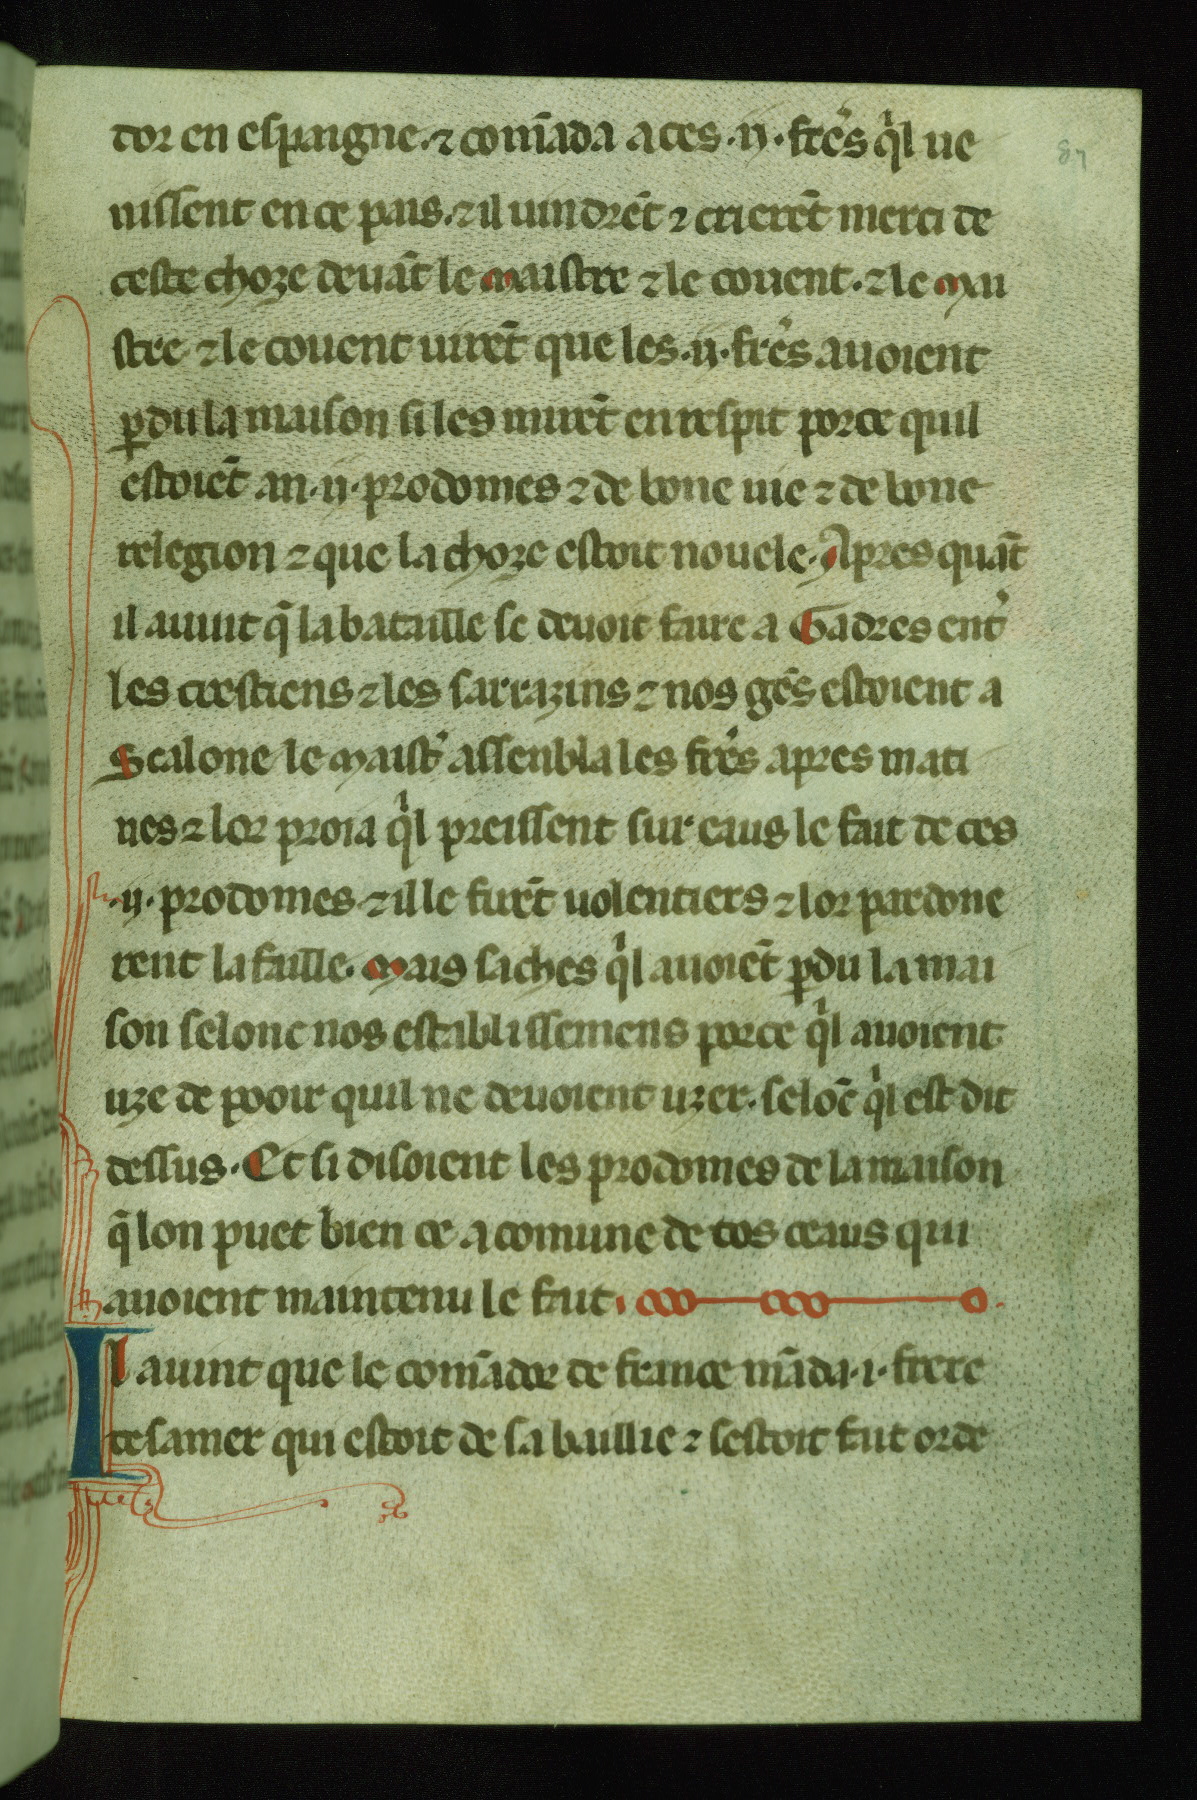 dor en espaigne. ⁊ com̃ada a ces .ij. frẽs q̃l ue
nissent en ce pais. ⁊ il uindrẽt ⁊ crierẽt merci de
ceste choze deuãt le maistre ⁊ le couent. ⁊ le mai
stre ⁊ le couent uirẽt que les .ij. frẽs auoient
ꝑdu la maison si les mirẽt en respit por ce quil
estoiẽt an .ij. prodomes ⁊ de bone uie ⁊ de bone
relegion ⁊ que la choze estoit nouele. Apres quãt
il auint q̃ la bataille se deuoit faire a Gadres ent͛
les crestiens ⁊ les sarrazins ⁊ nos gẽs estoient a
Scalone le maist͛ assenbla les frẽs apres mati
nes ⁊ lor proia q̃l preissent sur eaus le fait de ces
.ij. prodomes ⁊ il le firẽt uolentiers ⁊ lor pardone
rent la faille. Mais saches q̃l auoiẽt ꝑdu la mai
son selonc nos establissemens por ce q̃l auoient
uze de pooir quil ne deuoient uzer. selõc q̃l est dit
dessus. Et si disoient les prodomes de la maison
q̃ lon puet bien ce a comune de tos ceaus qui
auoient maintenu le fait.
Il auint que le com̃ador de france mãda .i. frere
tesamer qui estoit de sa baillie ⁊ sestoit fait orde